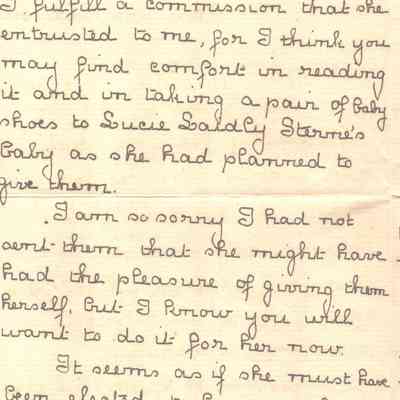 I fulfill a commission that she
entrusted to me, for I think you
may find comfort in reading
it and in taking a pair of baby
shoes to Lucie Laidly Sterne's
baby as she had planned to
give them.
I am so sorry I had not
sent them that she might have
had the pleasure of giving them
herself, but I know you will
want to do it for her now.
It seems as if she must have
been